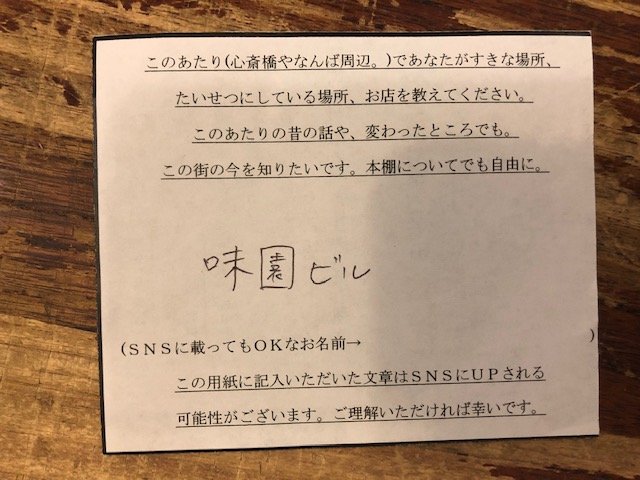 このあたり(心斎橋やなんば周辺。)であなたがすきな場所、
たいせつにしている場所、お店を教えてください。
このあたりの昔の話や、変わったところでも。
この街の今を知りたいです。本棚についてでも自由に。
味園ビル
(ＳＮＳに載ってもＯＫなお名前→ )
この用紙に記入いただいた文章はＳＮＳにＵＰされる
可能性がございます。ご理解いただければ幸いです。